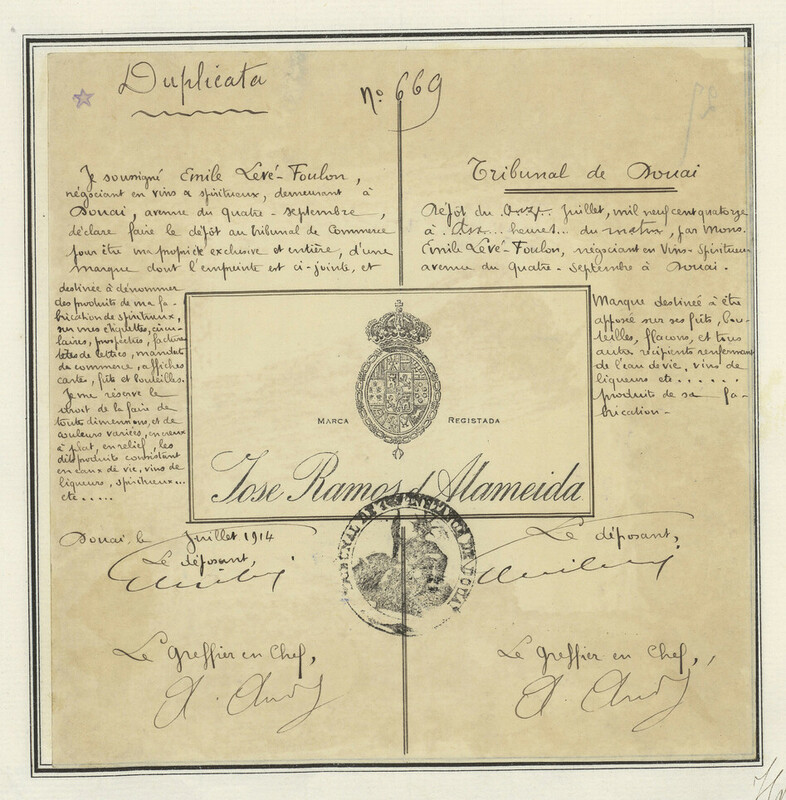 Duplicata
No 669
Je soussigné Emile Levé-Foulon,
négociant en vins & spiritueux, demeurant à
Douai, avenue du Quatre-Septembre,
déclare faire le dépôt au Tribunal de Commerce
pour être ma propriété exclusive et entière, d'une
marque dont l'empreinte est ci-jointe, et
destinée à dénommer
des produits de ma fa-
brication de spiritueux,
sur mes étiquettes, circu-
laires, prospectus, facture
têtes de lettres, mandats
de commerce, affiches
cartes, fûts et bouteilles.
Je me réserve le
droit de la faire de
toutes dimensions, et de
couleurs variées, en creux
à plat, en relief, les
dits produits consistant
en eaux de vie, vins de
liqueurs, spiritueux...
etc.....
Douai, le Juillet 1914
Le déposant,
Le Greffier en Chef,
Tribunal de Douai
Dépôt du Onze Juillet, mil neuf cent quatorze
à heures du matin, par Mons.
Emile Levé-Foulon, négociant en Vins-Spiritueux
avenue du Quatre-Septembre à Douai.
Marque destinée à être
apposé sur ses fûts, bou-
teilles, flacons, et tous
autre récipients renfermant
de l'eau de vie, vins de
liqueurs etc......
produits de sa fa-
brication-
Le déposant,
Le Greffier en Chef,
MARCA REGISTADA
Jose Ramos d'Alameida
TRIBUNAL DE 1ERE INSTANCE DE DOUAI